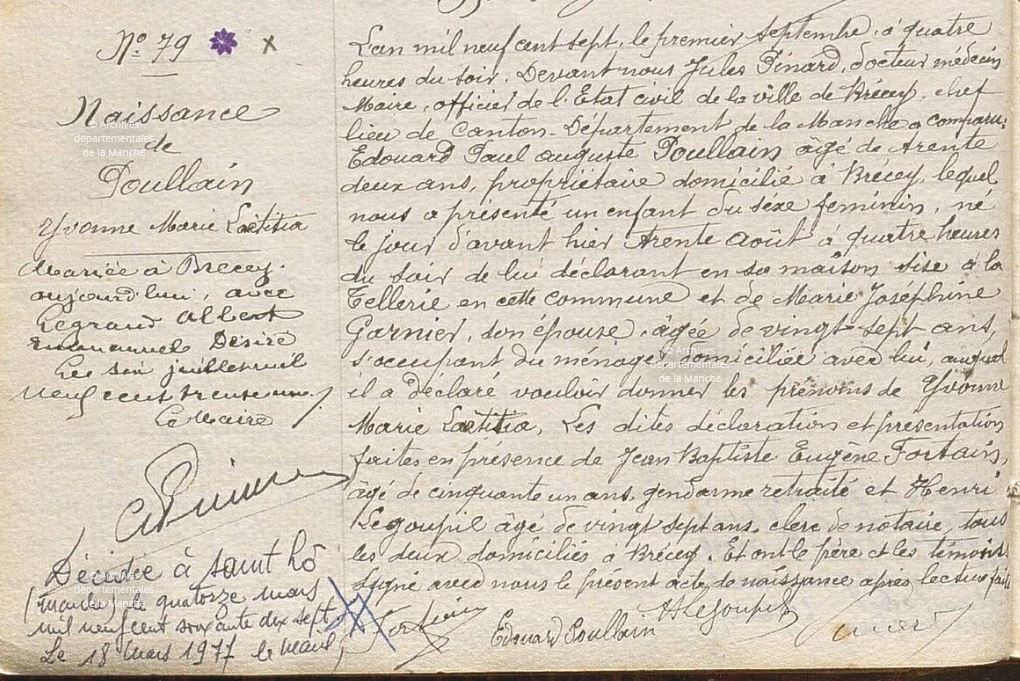 Nº 79
Naissance
de
Poullain
Yvonne Marie Laetitia
Mariée à Brécey
aujourd'hui, avec
Legrand Albert
Emmanuel Désiré
Le juillet mil
neuf cent trente
Le Maire
Décédée à Saint Lô
(manche) le quatorze mars
mil neuf cent soixante dix sept
Le 18 mars 1977 le maire,
L'an mil neuf cent sept, le premier septembre, à quatre
heures du soir. Devant nous Jules Pinard, docteur médecin
Maire, officier de l'Etat civil de la ville de Brécey, chef
lieu de Canton, Département de la Manche a comparu:
Edouard Paul auguste Poullain âgé de trente
deux ans, propriétaire domicilié à Brécey, lequel
nous a présenté un enfant du sexe feminin, né
le jour d'avant hier trente août à quatre heures
du soir de lui déclarant en sa maison sise à la
Tellerie en cette commune et de Marie Joséphine
Garnier, son épouse, âgée de vingt-sept ans,
s'occupant du ménage domiciliée avec lui, auquel
il a déclaré vouloir donner les prénoms de Yvonne
Marie Laetitia, Les dites déclaration et présentation
faites en présence de Jean Baptiste Eugène Fortain,
âgé de cinquante un ans, gendarme retraité et Henri
Legoupil âgé de vingt sept ans, clerc de notaire, tous
les deux domiciliés à Brécey. Et ont le père et les témoins
signé avec nous le présent acte de naissance après lecture faite
Fortain
Edouard Poullain
HLegoupil
© Archives
départementales
de la Manche
© Archives
départementales
de la Manche
départementales
de la Manche